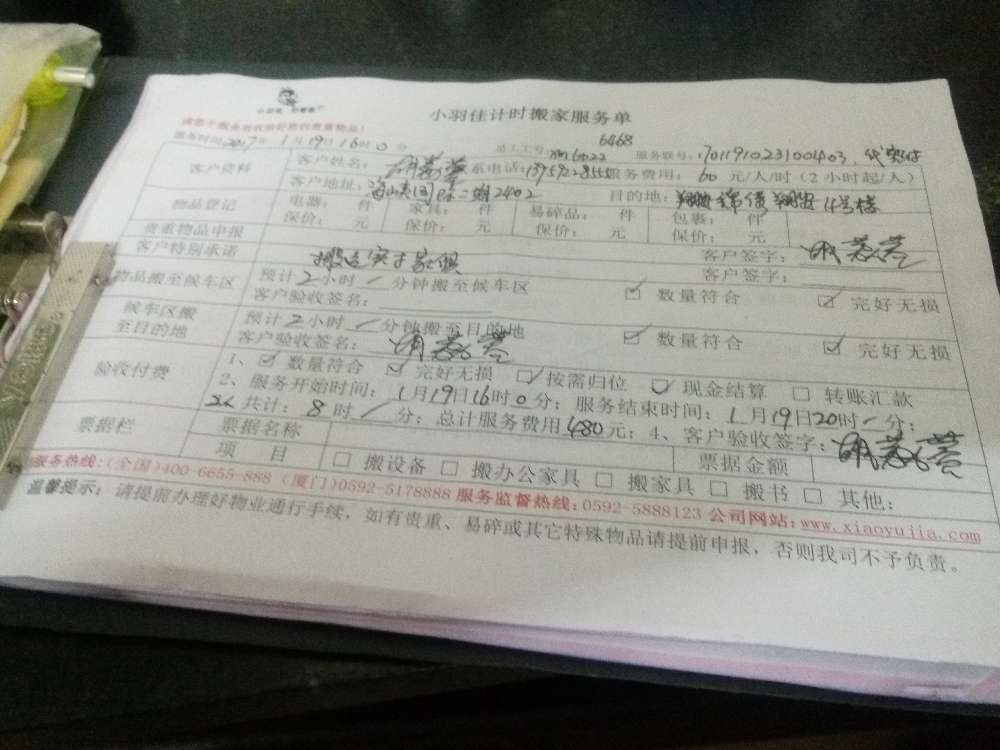 小羽佳计时搬家服务单
请您于服务前收拾好您的贵重物品！
服务时间2017年1月19日16时0分 员工工号： 6468 服务联号：1701191023100403.
客户资料 客户姓名： 系电话： 服务费用：60元/人/时(2小时起/人)
客户地址： 2402 目的地： 4号楼
物品登记 电器： 件 家具： 件 易碎品： 件 包裹： 件
贵重物品申报 保价： 元 保价： 元 保价： 元 保价： 元
客户特别承诺 客户签字：
物品搬至候车区 预计2小时 分钟搬至候车区 客户签字：
客户验收签名： ☑ 数量符合 ☑ 完好无损
候车区搬至目的地 预计2小时 分钟搬至目的地
客户验收签名： ☑ 数量符合 ☑ 完好无损
验收付费 1、☑ 数量符合 ☑ 完好无损 ☑ 按需归位 ☑ 现金结算 □ 转账汇款
2、服务开始时间：1月19日16时0分；服务结束时间：1月19日20时 分；
2人共计：8时 分；总计服务费用480元；4、客户验收签字：
票据栏 票据名称 票据金额
项 目 □ 搬设备 □ 搬办公家具 □ 搬家具 □ 搬书 □ 其他：
服务热线：(全国)400-6655-888 (厦门)0592-5178888 服务监督热线：0592-5888123 公司网站：www.xiaoyujia.com
温馨提示：请提前办理好物业通行手续，如有贵重、易碎或其它特殊物品请提前申报，否则我司不予负责。